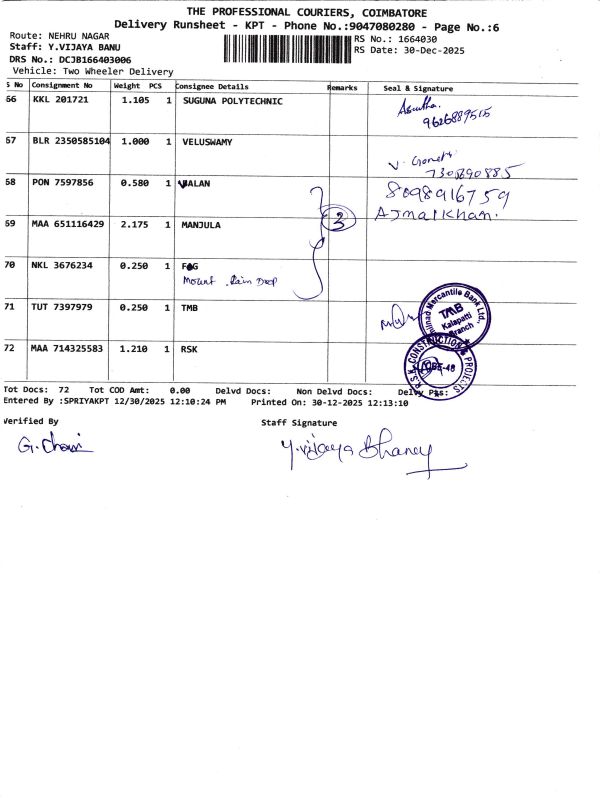 THE PROFESSIONAL COURIERS, COIMBATORE
Delivery Runsheet - KPT - Phone No.:9047080280 - Page No.:6
Route: NEHRU NAGAR
RS No.: 1664030
Staff: Y.VIJAYA BANU
RS Date: 30-Dec-2025
DRS No.: DCJB166403006
Vehicle: Two Wheeler Delivery
S No Consignment No Weight PCS Consignee Details Remarks Seal & Signature
66 KKL 201721 1.105 1 SUGUNA POLYTECHNIC
9626889515
67 BLR 2350585104 1.000 1 VELUSWAMY
7308890885
68 PON 7597856 0.580 1 VALAN
8098916759
AJmalkhan.
69 MAA 651116429 2.175 1 MANJULA
3
70 NKL 3676234 0.250 1 FOG
Mount Rain Drop
71 TUT 7397979 0.250 1 TMB
Mercantile Bank Ltd.,
TMB
Kalapatti
Branch
72 MAA 714325583 1.210 1 RSK
R.S.K. CONSTRUCTION PROJECTS
Tot Docs: 72 Tot COD Amt: 0.00 Delvd Docs: Non Delvd Docs: Delvy Pts:
Entered By :SPRIYAKPT 12/30/2025 12:10:24 PM Printed On: 30-12-2025 12:13:10
Verified By Staff Signature
Y.vijaya Bhaney